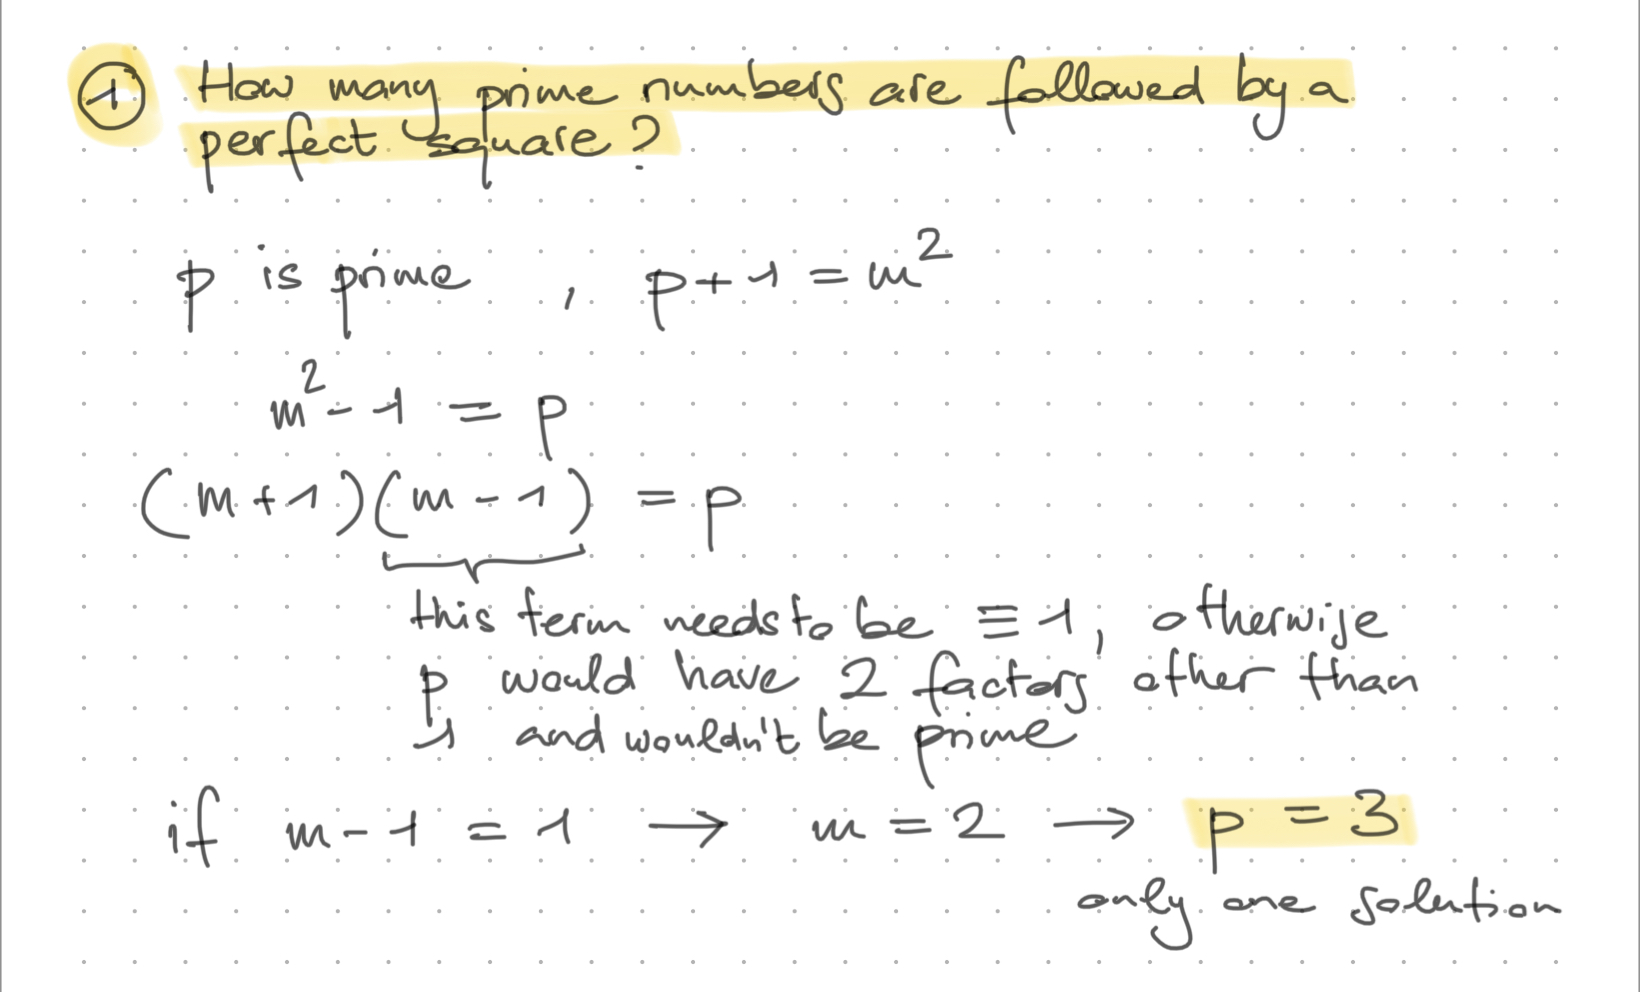 ① How many prime numbers are followed by a
perfect square?
p is prime , p+1 = m²
m² - 1 = p
(m+1)(m-1) = p
this term needs to be ≡ 1, otherwise
p would have 2 factors other than
1 and wouldn't be prime
if m-1 = 1 → m = 2 → p = 3
only one solution